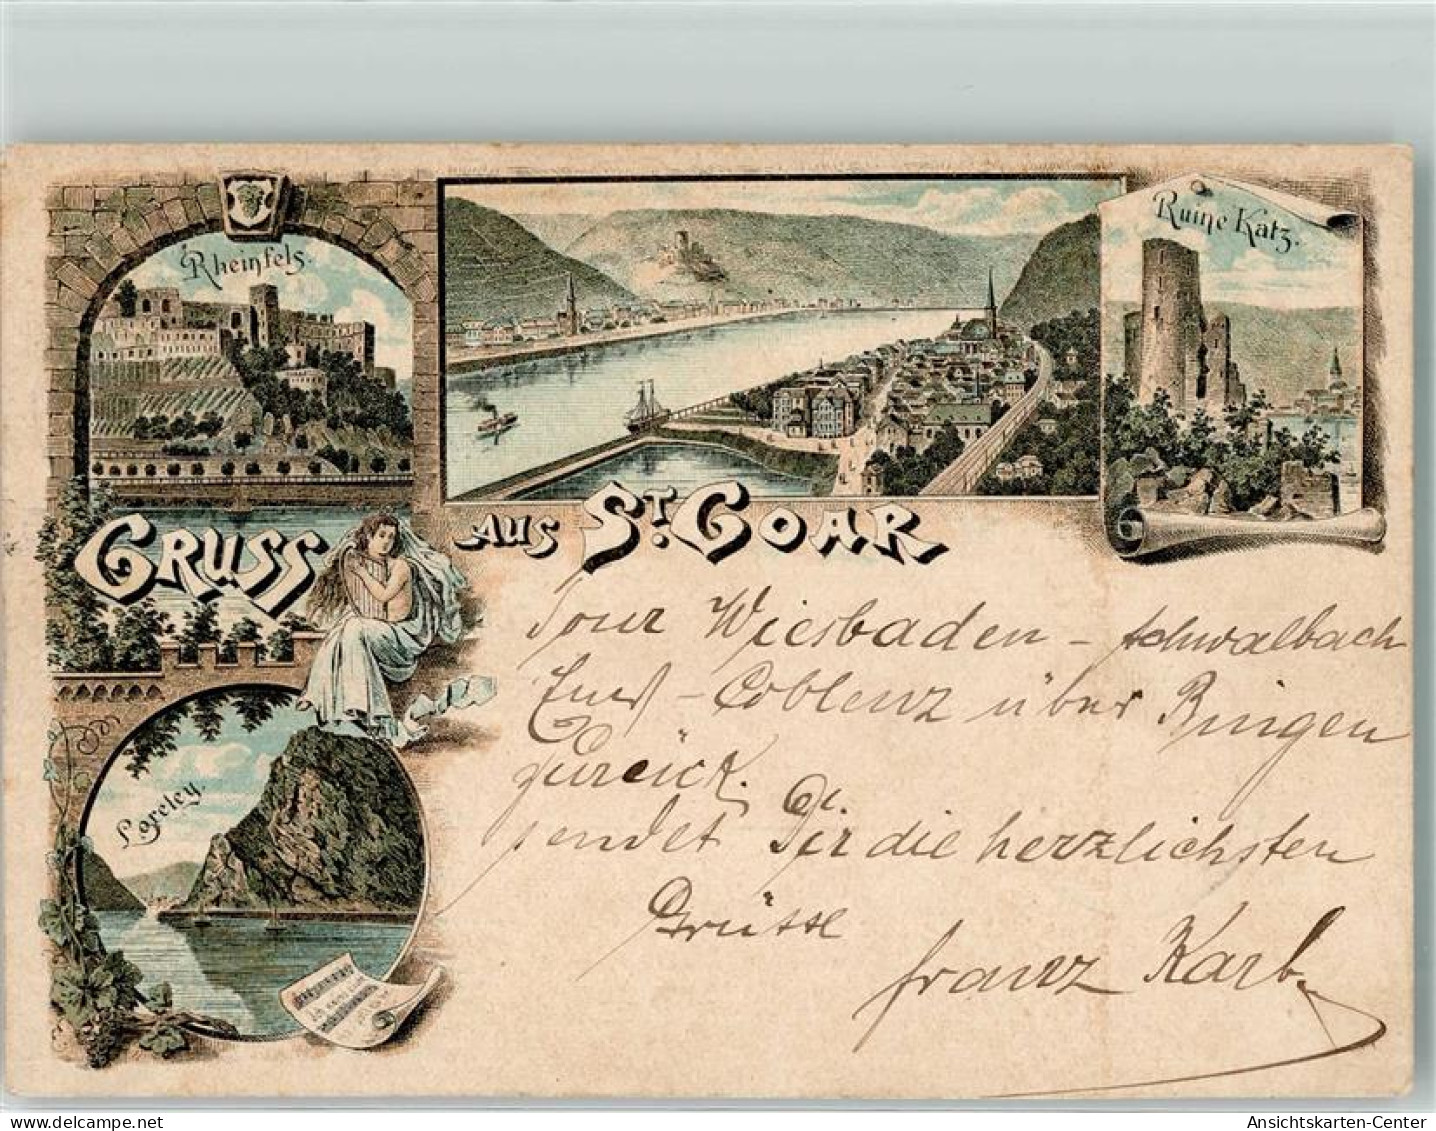 Rheinfels.
Ruine Katz.
GRUSS AUS ST. GOAR
Tour Wiesbaden – Schwalbach
Ems – Coblenz über Bingen
zurück.
sendet Dir die herzlichsten
Grüsse
Franz Karb
Loreley.
delcampe.net
Ansichtskarten-Center